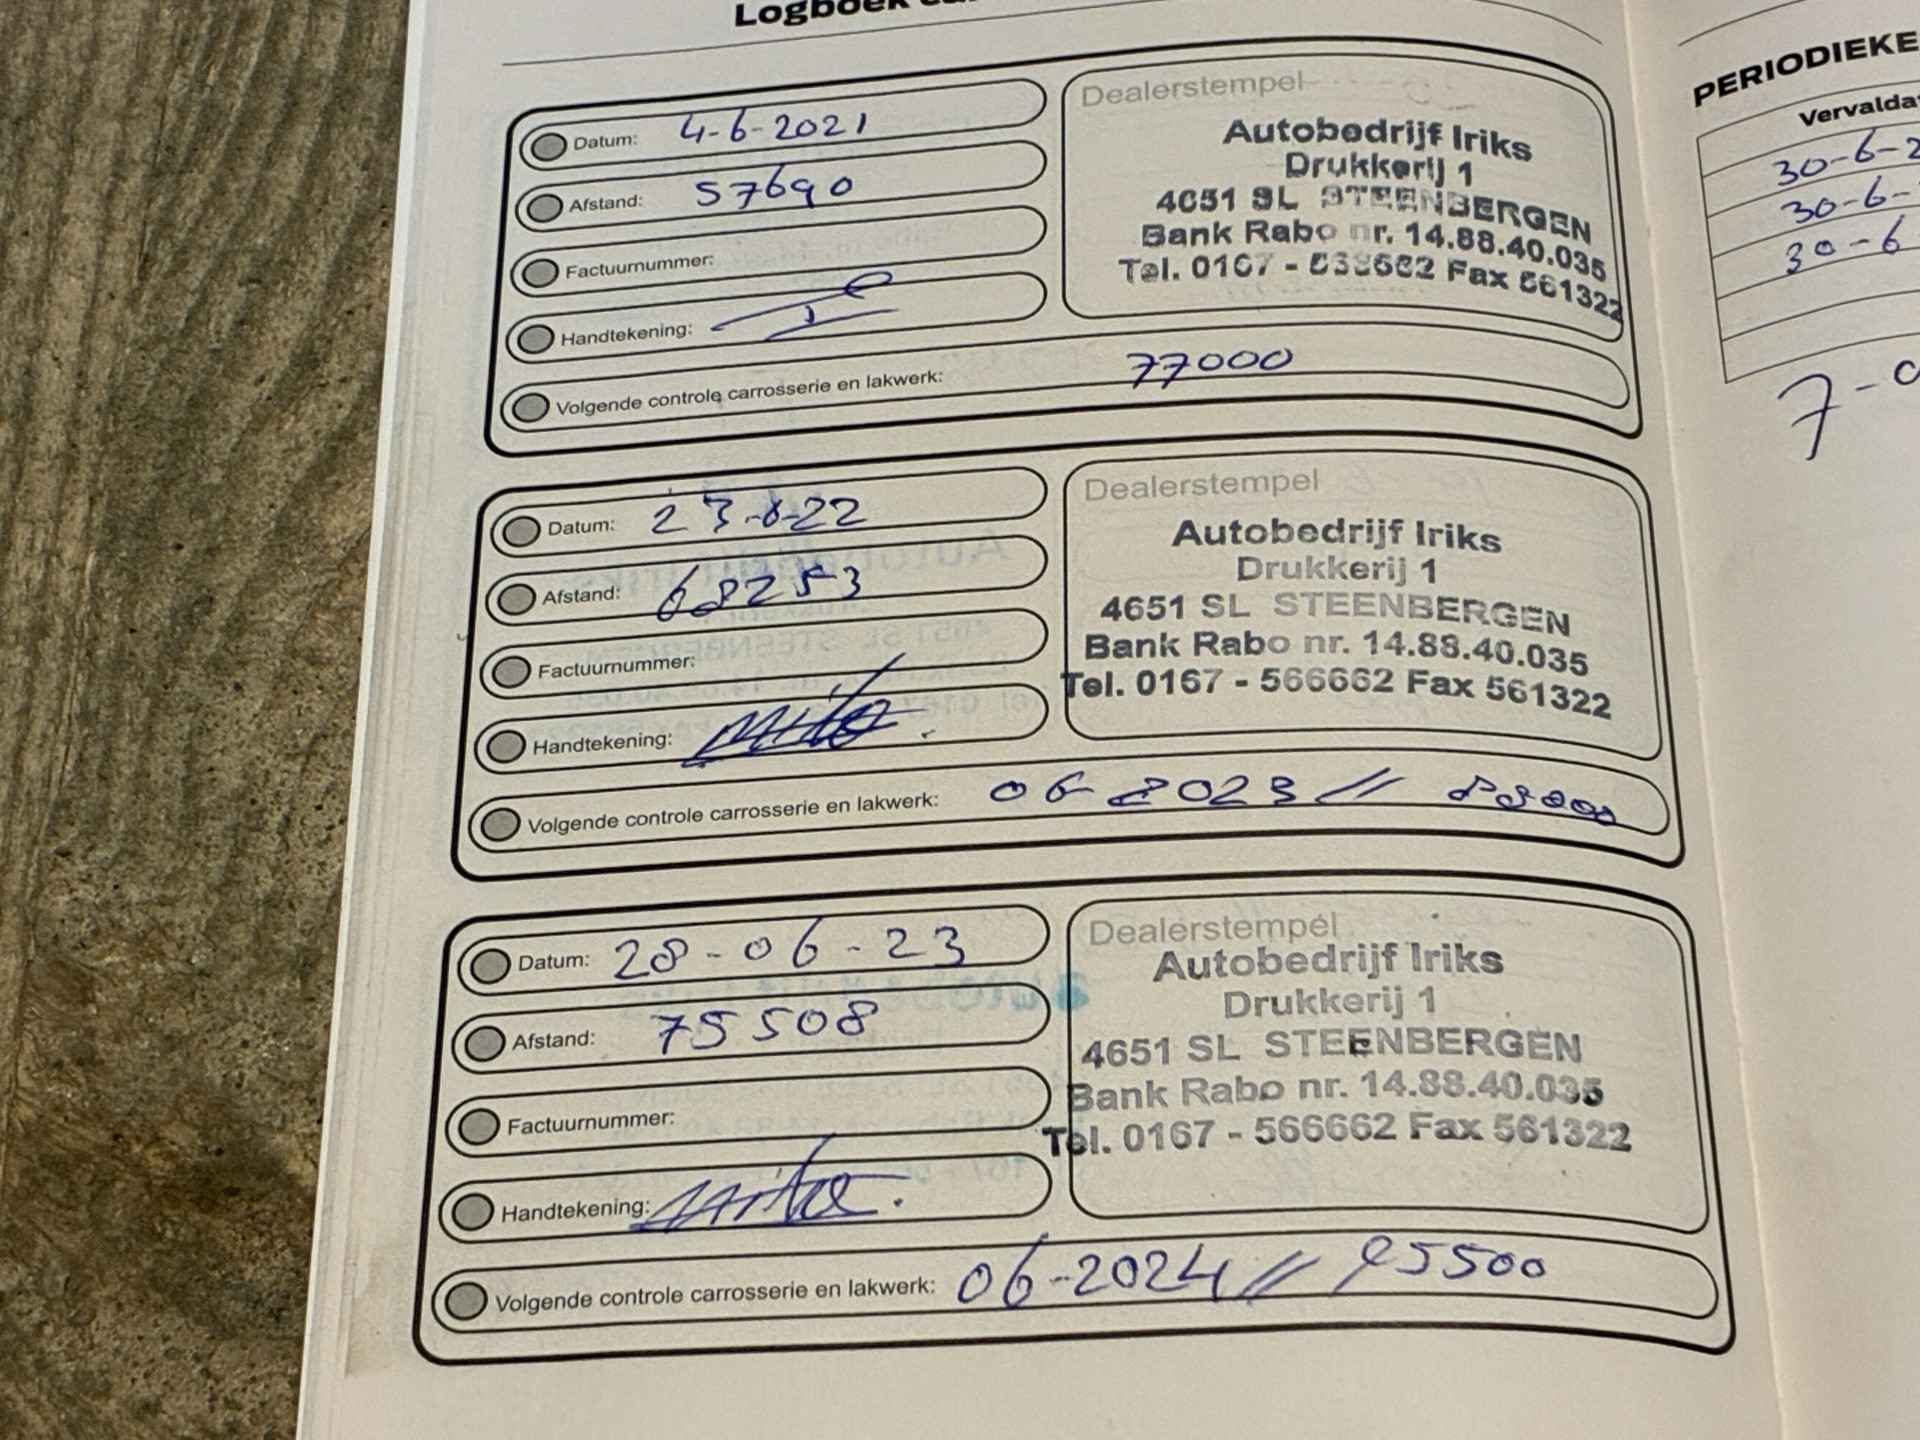 Logboek
Datum: 4-6-2021
Afstand: 57690
Factuurnummer:
Handtekening:
Volgende controle carrosserie en lakwerk: 77000
Dealerstempel
Autobedrijf Iriks
Drukkerij 1
4651 SL STEENBERGEN
Bank Rabo nr. 14.88.40.035
Tel. 0167 - Fax 561322
Datum: 23-6-22
Afstand: 68253
Factuurnummer:
Handtekening:
Volgende controle carrosserie en lakwerk: 06 2023 //
Dealerstempel
Autobedrijf Iriks
Drukkerij 1
4651 SL STEENBERGEN
Bank Rabo nr. 14.88.40.035
Tel. 0167 - 566662 Fax 561322
Datum: 28-06-23
Afstand: 75508
Factuurnummer:
Handtekening:
Volgende controle carrosserie en lakwerk: 06-2024 // 95500
Dealerstempel
Autobedrijf Iriks
Drukkerij 1
4651 SL STEENBERGEN
Bank Rabo nr. 14.88.40.035
Tel. 0167 - 566662 Fax 561322
PERIODIEKE
30-6-2
30-6-
30-6